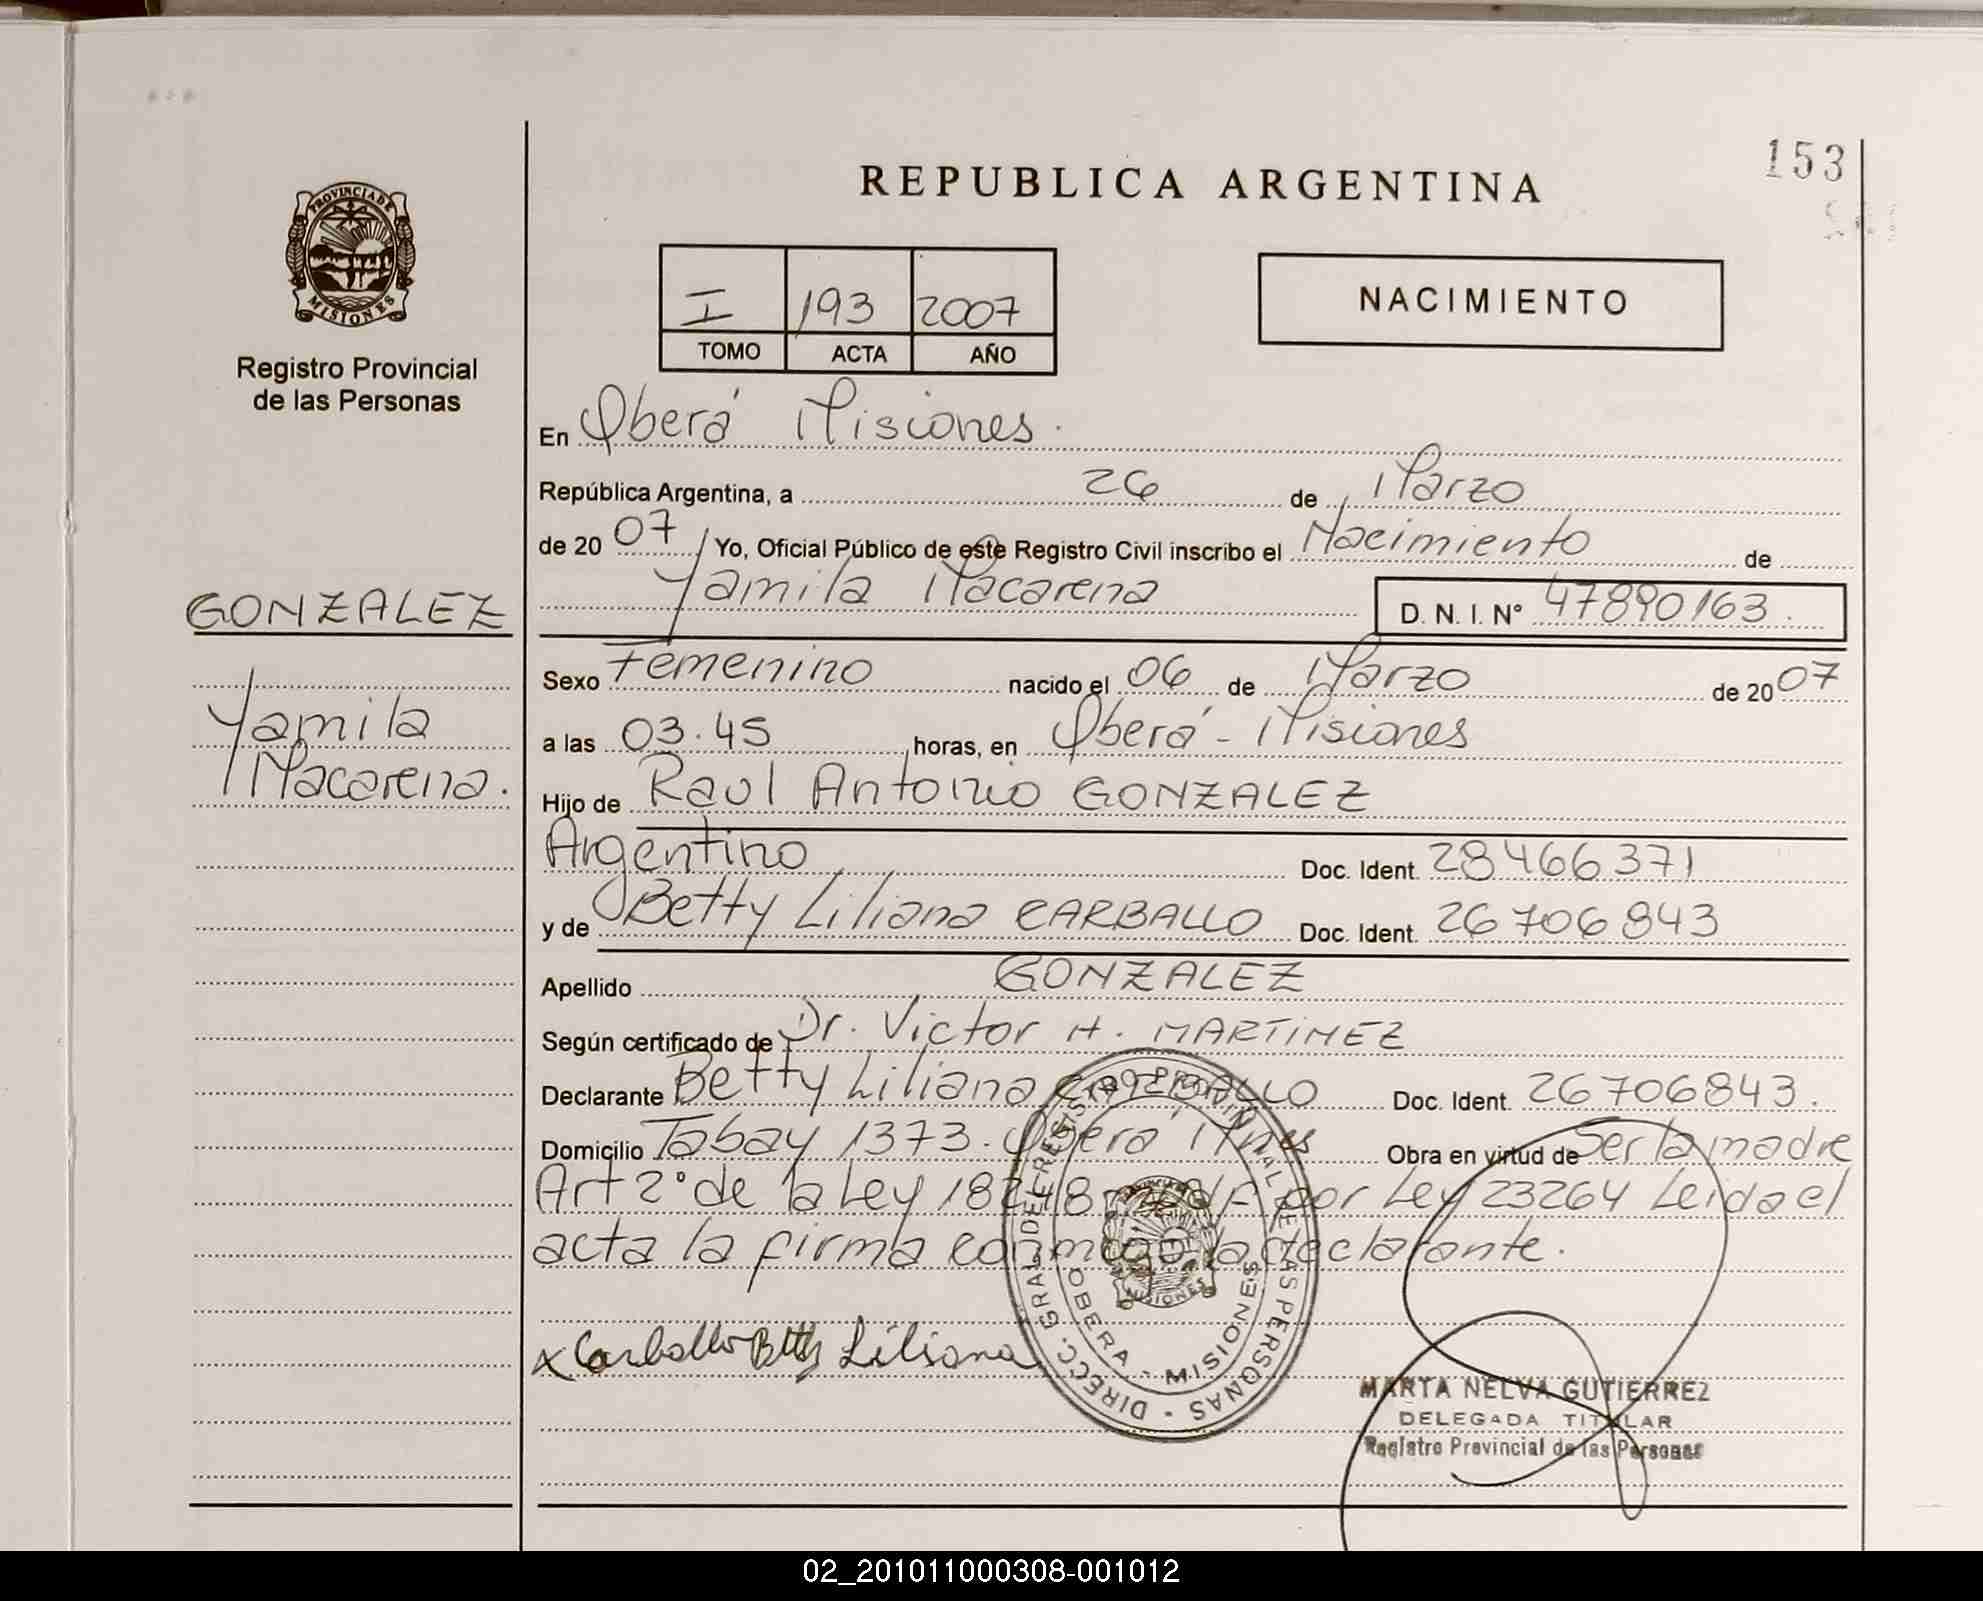 153
REPUBLICA ARGENTINA
PROVINCIA DE
MISIONES
Registro Provincial
de las Personas
I 193 2007
TOMO ACTA AÑO
NACIMIENTO
En Oberá Misiones.
República Argentina, a 26 de Marzo
de 20 07 Yo, Oficial Público de este Registro Civil inscribo el Nacimiento de
Yamila Macarena D. N. I. Nº 47890163.
GONZALEZ
Yamila
Macarena.
Sexo Femenino nacido el 06 de Marzo de 20 07
a las 03.45 horas, en Oberá - Misiones
Hijo de Raul Antonio GONZALEZ
Argentino Doc. Ident. 28466371
y de Betty Liliana CARBALLO Doc. Ident. 26706843
Apellido GONZALEZ
Según certificado de Dr. Victor H. MARTINEZ
Declarante Betty Liliana CARBALLO Doc. Ident. 26706843.
Domicilio Tabay 1373. Oberá Mnes Obra en virtud de Ser la madre
Art 2º de la Ley 18248 modif por Ley 23264 Leida el
acta la firma conmigo la declarante.
x Carballo Betty Liliana
DIRECC. GRAL. DEL REGISTRO PROVINCIAL DE LAS PERSONAS
OBERA - MISIONES
MISIONES
MARTA NELVA GUTIERREZ
DELEGADA TITULAR
Registro Provincial de las Personas
02_201011000308-001012